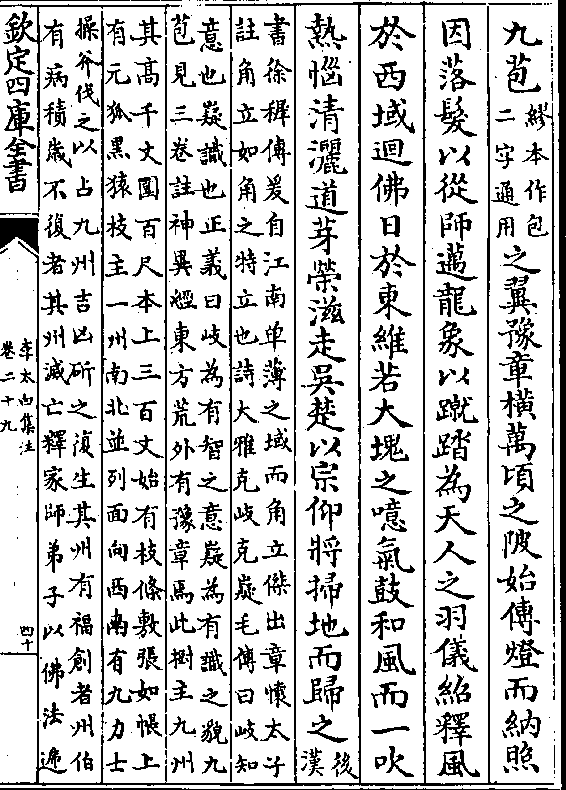 九苞繆本作包
二字通用之翼豫章橫萬頃之陂始傳燈而納照
因落髮以從師邁龍象以蹴踏為天人之羽儀紹釋風
於西域迴佛日於東維若大塊之噫氣鼓和風而一吹
熱惱清灑道芽榮滋走吳楚以宗仰將掃地而歸之後
漢
書徐穉傳爰自江南卑薄之域而角立傑出章懷太子
註角立如角之特立也詩大雅克岐克嶷毛傳曰岐知
意也嶷識也正義曰岐為有智之意嶷為有識之貌九
苞見三卷註神異經東方荒外有豫章焉此樹主九州
其高千丈圍百尺本上三百丈始有枝條敷張如帳上
有元狐黑猿枝主一州南北並列面向西南有九力士
操斧伐之以占九州吉凶斫之復生其州有福創者州伯
有病積歲不復者其州滅亡釋家師弟子以佛法遞
欽定四庫全書
李太白集注
卷二十九
四十